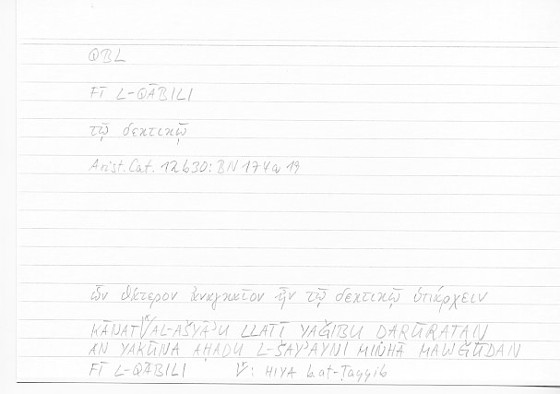 QBL
FĪ L-QĀBILI
τῷ δεκτικῷ
Arist. Cat. 12b30: BN 174a 19
ὧν θάτερον ἀναγκαῖον ἦν τῷ δεκτικῷ ὑπάρχειν
KĀNAT AL-AŠYĀʾU LLATĪ YAǦIBU ḌARŪRATAN
AN YAKŪNA AḤADU L-ŠAYʾAYNI MINHĀ MAWǦŪDAN
FĪ L-QĀBILI : HIYA b.aṭ-Ṭayyib